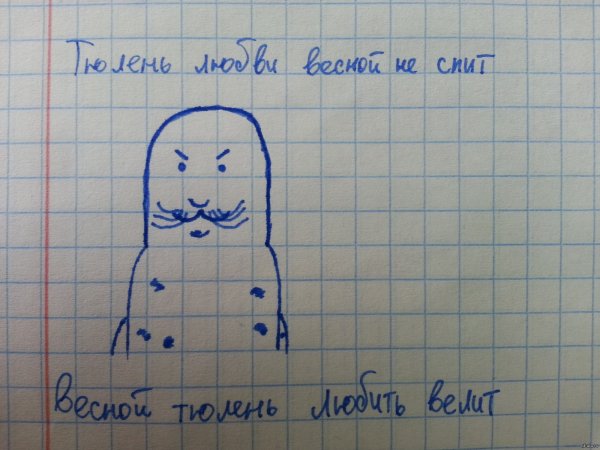 Тюлень любви весной не спит
Весной тюлень любить велит